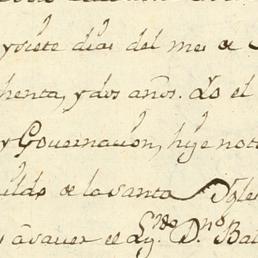 y siete dias del mes de
henta, y dos años. Yo el
y Governacion, hize not
ildo de la santa Ygle
s â saver el Sr. Dn. Bal